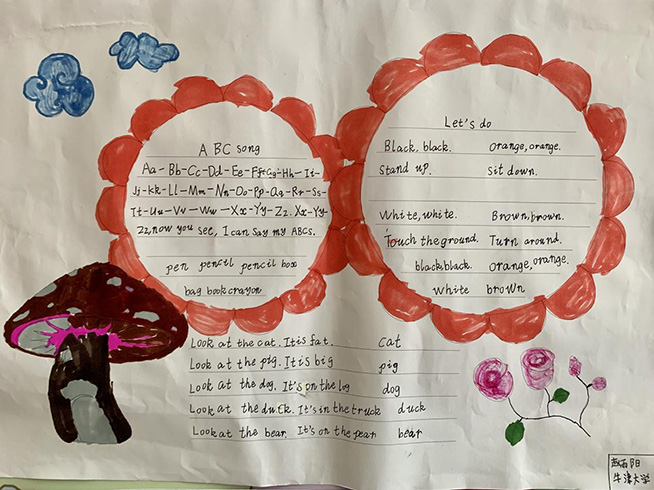 ABC song
Aa-Bb-Cc-Dd-Ee-Ff-Gg-Hh-Ii-
Jj-Kk-Ll-Mm-Nn-Oo-Pp-Qq-Rr-Ss-
Tt-Uu-Vv-Ww-Xx-Yy-Zz. Xx-Yy-
Zz, now you see, I can say my ABCs.
pen pencil pencil box
bag book crayon
Let's do
Black, black. orange, orange.
Stand up. Sit down.
White, white. Brown, brown.
Touch the ground. Turn around.
black black. orange, orange.
white brown
Look at the cat. It is fat. cat
Look at the pig. It is big pig
Look at the dog. It's on the log dog
Look at the duck. It's in the truck duck
Look at the bear. It's on the pear bear
牛津大学